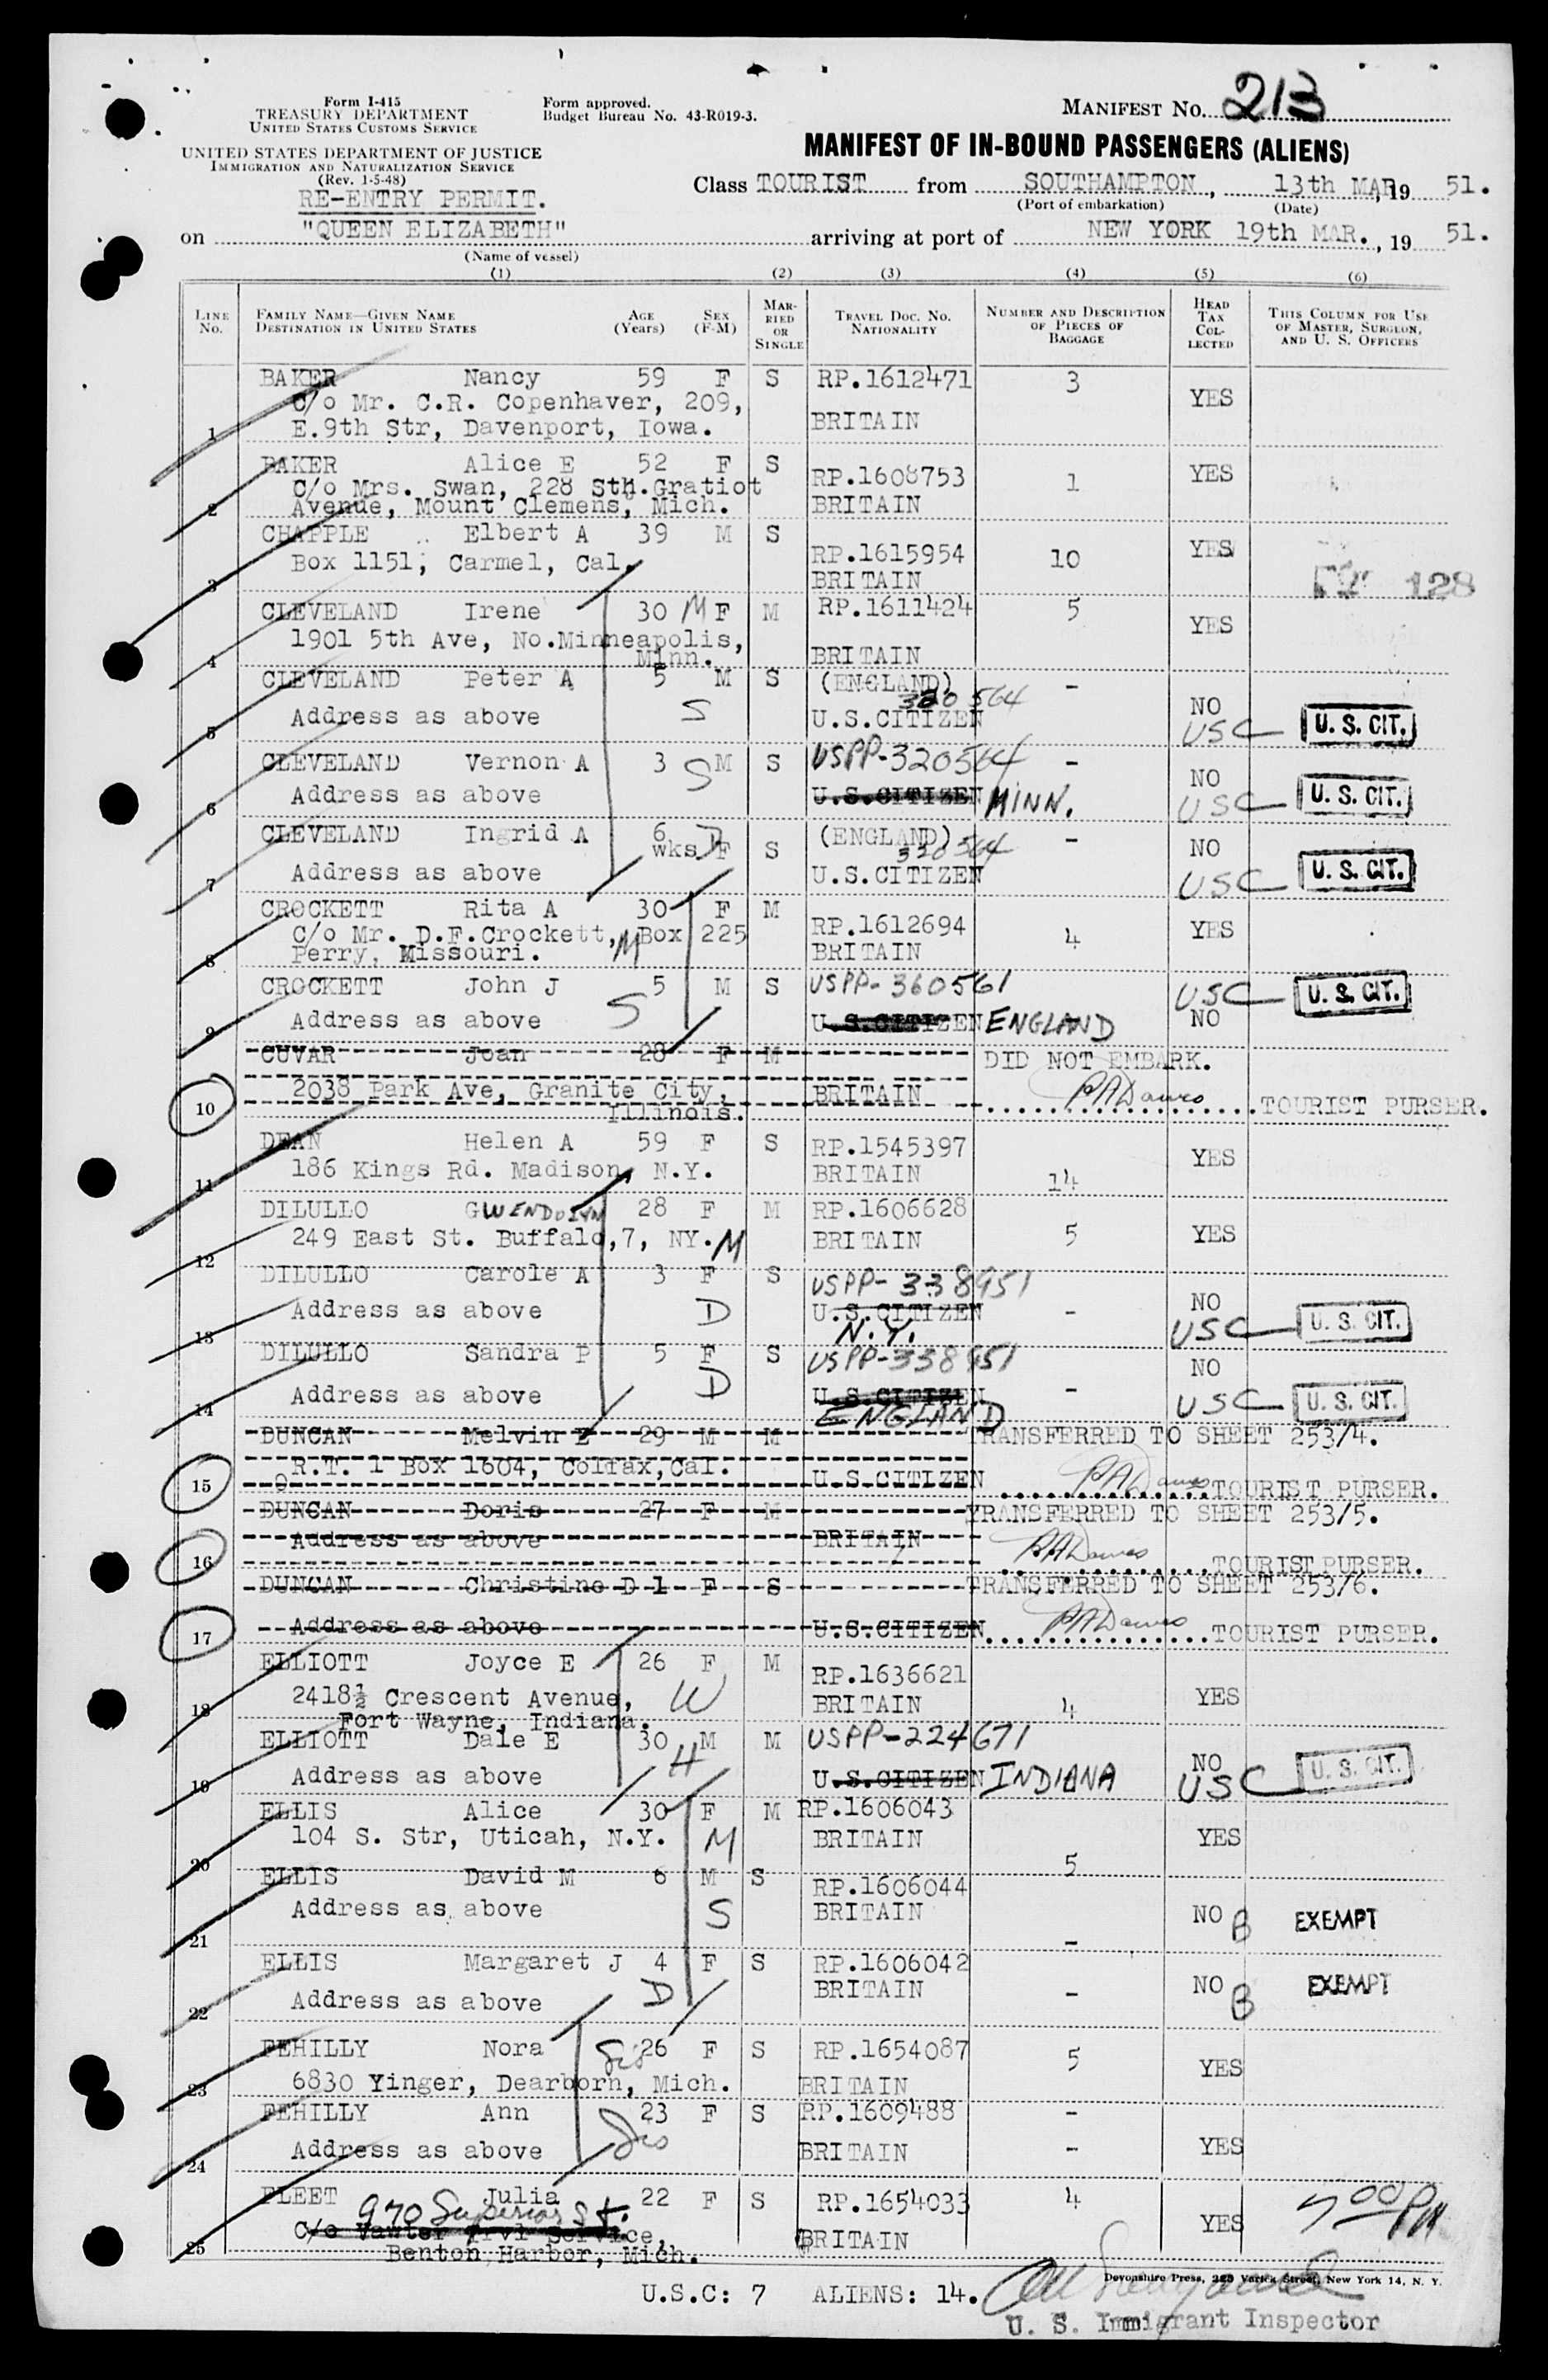 Form I-415
TREASURY DEPARTMENT
UNITED STATES CUSTOMS SERVICE
Form approved.
Budget Bureau No. 43-R019-3.
MANIFEST No. 213
UNITED STATES DEPARTMENT OF JUSTICE
IMMIGRATION AND NATURALIZATION SERVICE
(Rev. 1-5-48)
MANIFEST OF IN-BOUND PASSENGERS (ALIENS)
RE-ENTRY PERMIT.
Class TOURIST from SOUTHAMPTON, 13th MAR, 19 51.
(Port of embarkation) (Date)
on "QUEEN ELIZABETH" arriving at port of NEW YORK 19th MAR., 19 51.
(Name of vessel)
(1) (2) (3) (4) (5) (6)
LINE No. FAMILY NAME—GIVEN NAME DESTINATION IN UNITED STATES AGE (Years) SEX (F-M) MARRIED OR SINGLE TRAVEL DOC. NO. NATIONALITY NUMBER AND DESCRIPTION OF PIECES OF BAGGAGE HEAD TAX COLLECTED THIS COLUMN FOR USE OF MASTER, SURGEON, AND U. S. OFFICERS
BAKER Nancy 59 F S RP.1612471 3 YES
C/o Mr. C.R. Copenhaver, 209,
1 E.9th Str, Davenport, Iowa. BRITAIN
BAKER Alice E 52 F S RP.1608753 1 YES
C/o Mrs. Swan, 228 Sth.Gratiot
2 Avenue, Mount Clemens, Mich. BRITAIN
CHAPPLE Elbert A 39 M S RP.1615954 10 YES
3 Box 1151, Carmel, Cal. BRITAIN 128
CLEVELAND Irene 30 M F M RP.1611424 5 YES
1901 5th Ave, No.Minneapolis,
4 Minn. BRITAIN
CLEVELAND Peter A 5 M S (ENGLAND) - NO
320564
5 Address as above S U.S.CITIZEN USC U. S. CIT.
CLEVELAND Vernon A 3 S M S USPP-320564 - NO
6 Address as above U.S.CITIZEN MINN. USC U. S. CIT.
CLEVELAND Ingrid A 6 wks D F S (ENGLAND) - NO
320564
7 Address as above U.S.CITIZEN USC U. S. CIT.
CROCKETT Rita A 30 F M RP.1612694 4 YES
C/o Mr. D.F.Crockett, M Box 225
8 Perry, Missouri. BRITAIN
CROCKETT John J 5 M S USPP-360561 USC U. S. CIT.
9 Address as above S U.S.CITIZEN ENGLAND NO
CUVAR Joan 28 F M DID NOT EMBARK.
2038 Park Ave, Granite City, BRITAIN
10 Illinois. PADawes TOURIST PURSER.
DEAN Helen A 59 F S RP.1545397 YES
11 186 Kings Rd. Madison, N.Y. BRITAIN 14
DILULLO GWENDOLYN 28 F M RP.1606628
12 249 East St. Buffalo,7, NY. M BRITAIN 5 YES
DILULLO Carole A 3 F S USPP-338951
13 Address as above D U.S.CITIZEN - NO
N.Y. USC U. S. CIT.
DILULLO Sandra P 5 F S USPP-338951 NO
14 Address as above D U.S.CITIZEN - USC U. S. CIT.
ENGLAND
DUNCAN Melvin E 29 M M TRANSFERRED TO SHEET 253/4.
15 R.T. 1 Box 1604, Colfax,Cal. U.S.CITIZEN PADawes TOURIST PURSER.
DUNCAN Doris 27 F M YRANSFERRED TO SHEET 253/5.
16 Address as above BRITAIN PADawes TOURIST PURSER.
DUNCAN Christine D 1 F S TRANSFERRED TO SHEET 253/6.
17 Address as above U.S.CITIZEN PADawes TOURIST PURSER.
ELLIOTT Joyce E 26 F M RP.1636621
18 2418½ Crescent Avenue, W BRITAIN 4 YES
Fort Wayne, Indiana.
ELLIOTT Dale E 30 M M USPP-224671 NO
19 Address as above H U.S.CITIZEN INDIANA USC U. S. CIT.
ELLIS Alice 30 F M RP.1606043
20 104 S. Str, Uticah, N.Y. M BRITAIN 5 YES
ELLIS David M 6 M S RP.1606044
21 Address as above S BRITAIN - NO B EXEMPT
ELLIS Margaret J 4 F S RP.1606042
22 Address as above D BRITAIN - NO B EXEMPT
FEHILLY Nora Sis 26 F S RP.1654087 5 YES
23 6830 Yinger, Dearborn, Mich. BRITAIN
FEHILLY Ann 23 F S RP.1609488 -
24 Address as above Sis BRITAIN - YES
FLEET Julia 22 F S RP.1654033 4 YES 700 PM
970 Superior St.
C/o Vawter Trvl Service, BRITAIN
25 Benton Harbor, Mich.
Devonshire Press, 225 Varick Street, New York 14, N. Y.
U.S.C: 7 ALIENS: 14.
U. S. Immigrant Inspector